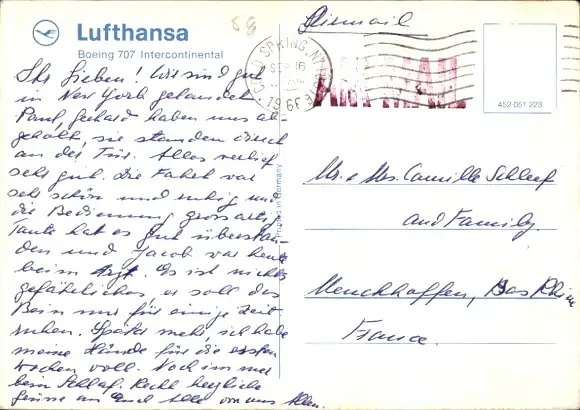 Lufthansa
Boeing 707 Intercontinental
Airmail
COLD SPRING, N.Y.
SEP 16
1966
AIR MAIL
452 051 223
Printed in Germany
Ihr Lieben! Wir sind gut
in New York gelandet
Paul, Gerhard haben uns ab-
geholt, sie standen direkt
an der Tür. Alles verlief
sehr gut. Die Fahrt war
sehr schön und ruhig und
die Bedienung grossartig
Tante hat es gut überstan-
den und Jacob war heute
beim Arzt. Es ist nichts
gefährliches, er soll das
Bein nur für einige Zeit
ruhen. Später mehr, ich habe
meine Hände für die ersten
Wochen voll. Noch immer
beim Schlaf. Recht herzliche
Grüsse an Euch Alle von uns Allen.
Mr. & Mrs. Camille Schleef
and Family.
Menchhoffen, Bas Rhin
France.